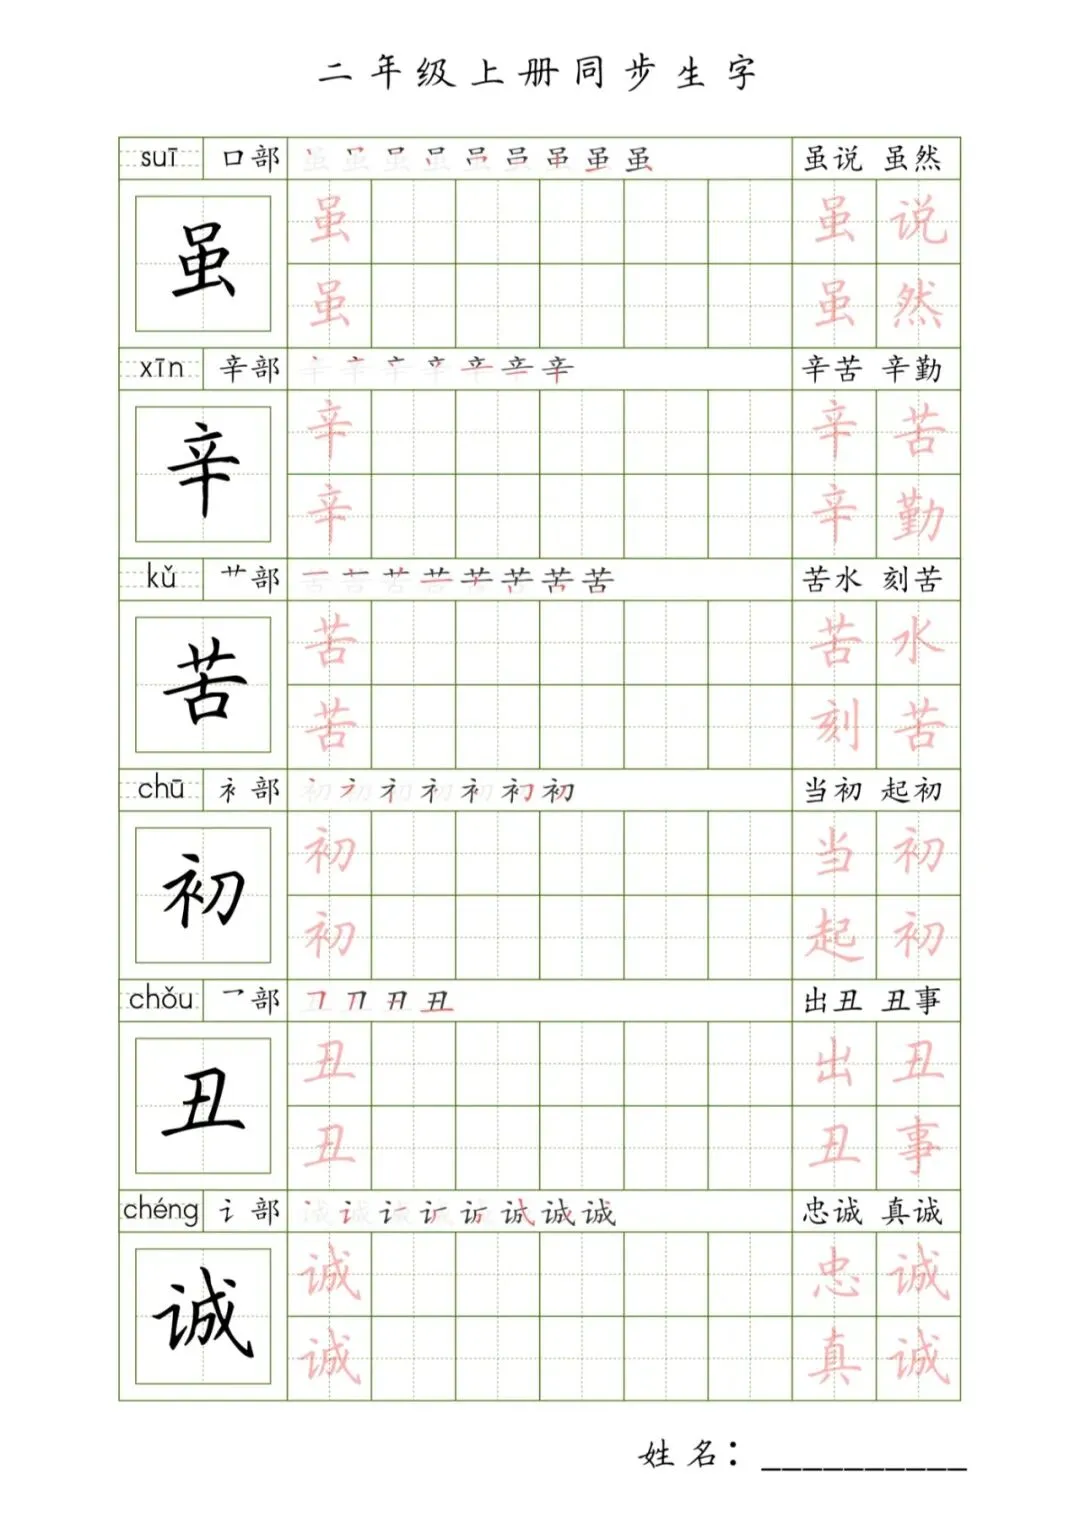 二年级上册同步生字
suī 口部 虽虽虽虽虽虽虽虽虽 虽说 虽然
虽 虽 虽说
虽 虽然
xīn 辛部 辛辛辛辛辛辛辛 辛苦 辛勤
辛 辛 辛苦
辛 辛勤
kǔ 艹部 苦苦苦苦苦苦苦苦 苦水 刻苦
苦 苦 苦水
苦 刻苦
chū 衤部 初初初初初初初 当初 起初
初 初 当初
初 起初
chǒu 乛部 丑丑丑丑 出丑 丑事
丑 丑 出丑
丑 丑事
chéng 讠部 诚诚诚诚诚诚诚诚 忠诚 真诚
诚 诚 忠诚
诚 真诚
姓名：__________